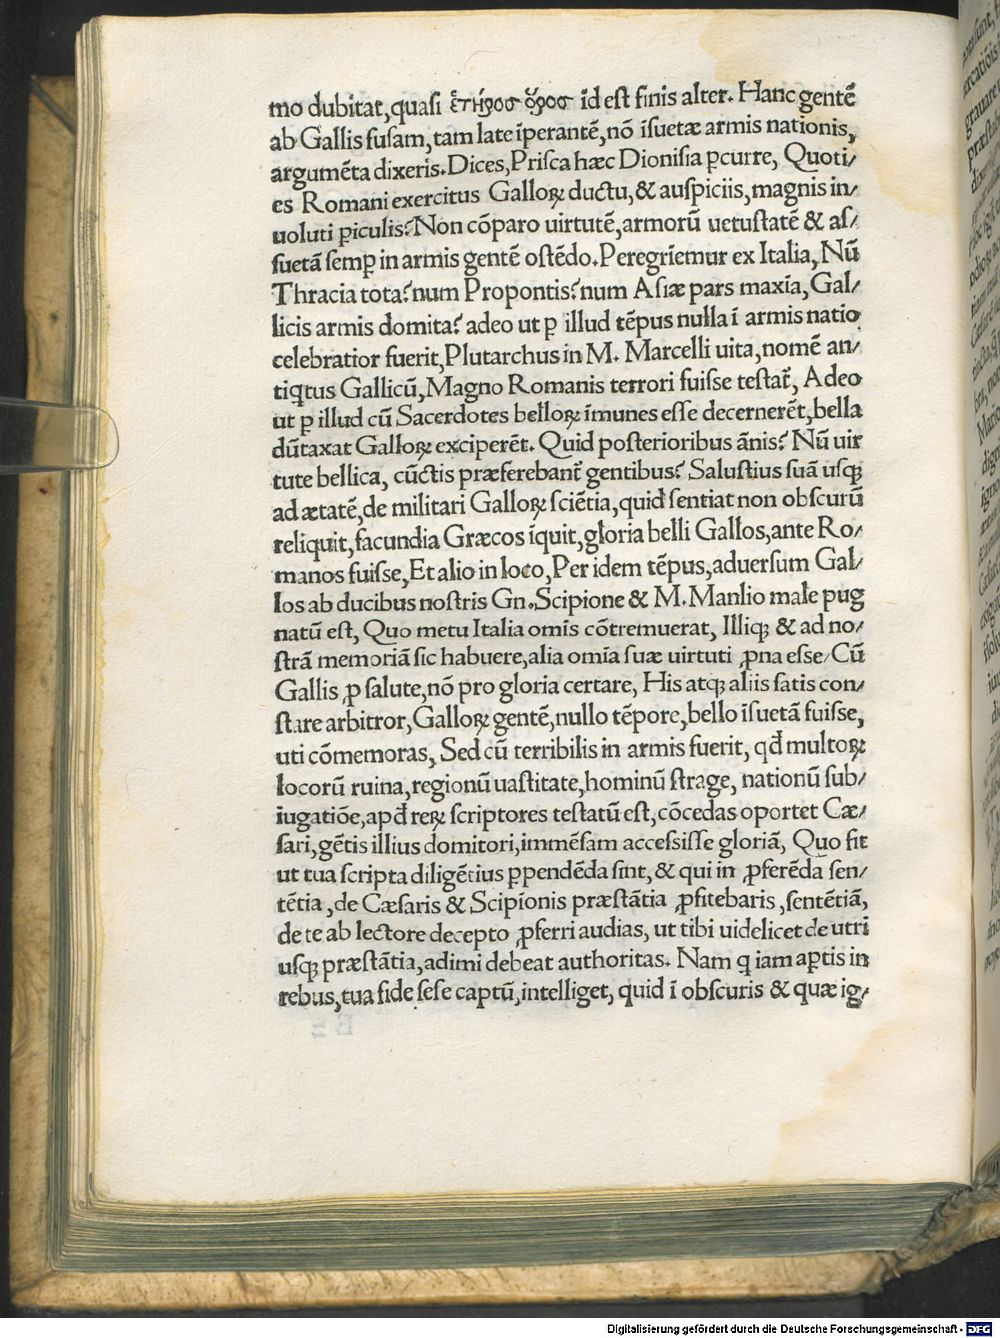 mo dubitat,quasi ἑτήροσ ὅροσ id est finis alter. Hanc gentē
ab Gallis fusam,tam late īperantē,nō īsuetæ armis nationis,
argumēta dixeris.Dices,Prisca hæc Dionisia ꝑcurre, Quoti/
es Romani exercitus Galloꝝ ductu,& auspiciis,magnis in/
uoluti ꝑiculis?Non cōparo uirtutē,armorū uetustatē & as/
suetā semꝑ in armis gentē ostēdo.Peregrīemur ex Italia,Nū
Thracia tota?num Propontis?num Asiæ pars maxīa,Gal/
licis armis domita? adeo ut ꝑ illud tēpus nulla ī armis natio
celebratior fuerit,Plutarchus in M. Marcelli uita,nomē an/
tiqtus Gallicū,Magno Romanis terrori fuisse testat̄, Adeo
ut ꝑ illud cū Sacerdotes belloꝝ īmunes esse decernerēt,bella
dūtaxat Galloꝝ exciperēt. Quid posterioribus ānis? Nū uir
tute bellica, cūctis præferebant̄ gentibus? Salustius suā usqꝫ
ad ætatē,de militari Galloꝝ sciētia,quid sentiat non obscurū
reliquit,facundia Græcos īquit,gloria belli Gallos,ante Ro/
manos fuisse,Et alio in loco,Per idem tēpus,aduersum Gal/
los ab ducibus nostris Gn.Scipione & M.Manlio male pug
natū est, Quo metu Italia omīs cōtremuerat, Illiqꝫ & ad no/
strā memoriā sic habuere,alia omīa suæ uirtuti ꝓna esse/Cū
Gallis ꝓ salute,nō pro gloria certare, His atqꝫ aliis satis con/
stare arbitror,Galloꝝ gentē,nullo tēpore,bello īsuetā fuisse,
uti cōmemoras, Sed cū terribilis in armis fuerit, qđ multoꝝ
locorū ruina,regionū uastitate,hominū strage, nationū sub/
iugatiōe,apđ reꝝ scriptores testatū est,cōcedas oportet Cæ/
sari,gētis illius domitori,immēsam accessisse gloriā, Quo fit
ut tua scripta diligētius ꝑpendēda sint,& qui in ꝓferēda sen/
tētia,de Cæsaris & Scipionis præstātia ꝓfitebaris,sentētiā,
de te ab lectore decepto ꝓferri audias, ut tibi uidelicet de utri
usqꝫ præstātia,adimi debeat authoritas. Nam q iam aꝑtis in
rebus,tua fide sese captū,intelliget, quid ī obscuris & quæ ig/
Digitalisierung gefördert durch die Deutsche Forschungsgemeinschaft - DFG